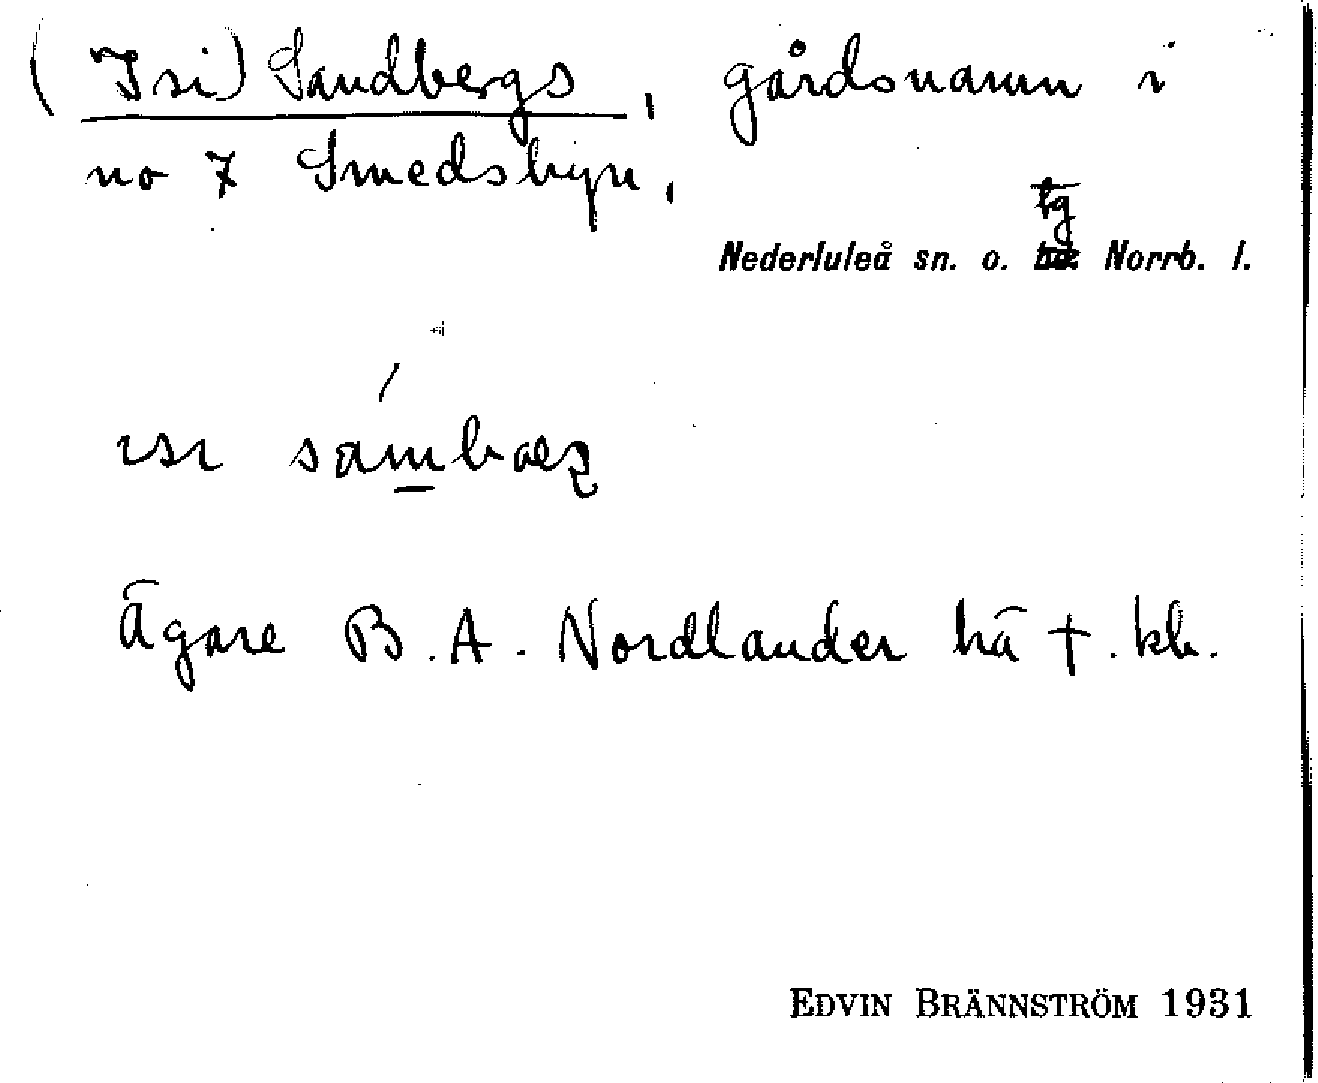 (Isi) Sandbergs, gårdsnamn i
no 7 Smedsbyn,
tg
Nederluleå sn. o. Norrb. l.
ısı sambaʀʂ
Ägare B. A. Nordlander hä †. kh.
EDVIN BRÄNNSTRÖM 1931